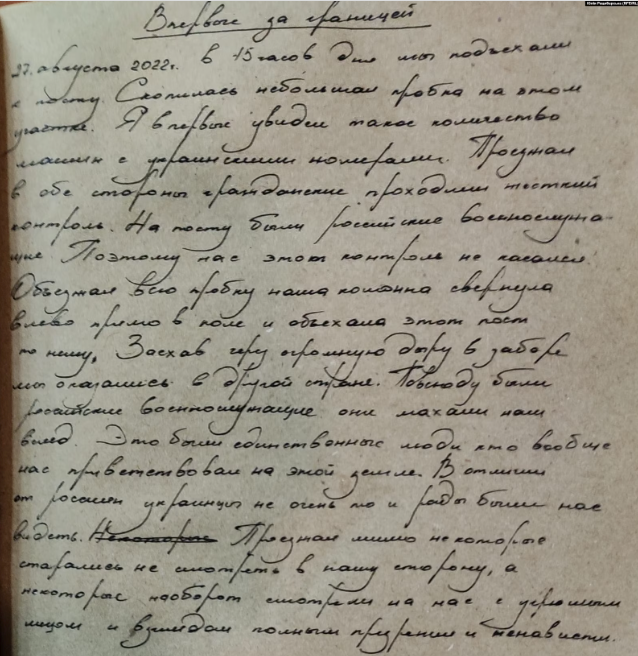 Впервые за границей
27. августа 2022г. в 15 часов дня мы подъехали
к посту. Скопилась небольшая пробка на этом
участке. Я впервые увидел такое количество
машин с украинскими номерами. Проезжая
в обе стороны гражданские проходили жесткий
контроль. На посту были российские военнослужа-
щие Поэтому нас этот контроль не касался.
Объезжая всю пробку наша колонна свернула
влево прямо в поле и объехала этот пост
по нему, Заехав через огромную дыру в заборе
мы оказались в другой стране. Повсюду были
российские военнослужащие они махали нам
вслед. Это были единственные люди кто вообще
нас приветствовал на этой земле. В отличии
от россиян украинцы не очень то и рады были нас
видеть. Некоторые Проезжая мимо некоторые
старались не смотреть в нашу сторону, а
некоторые наоборот смотрели на нас с угрюмым
лицом и взглядом полным презрения и ненависти.